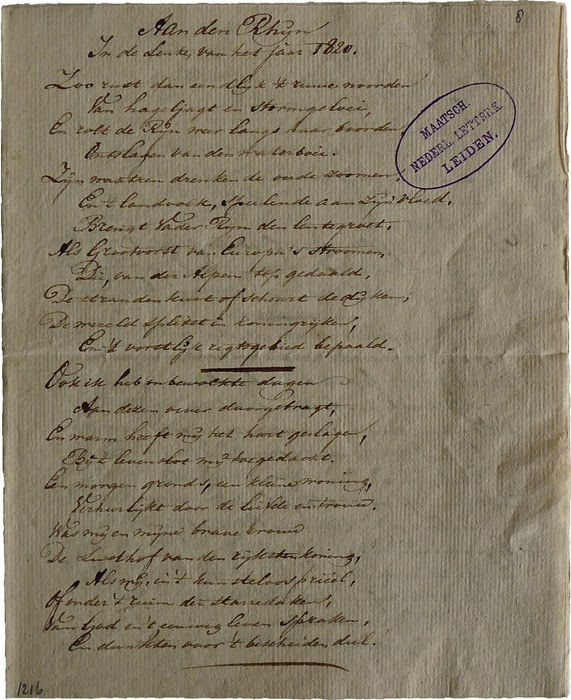 8
Aan den Rhijn
In de Lente, van het jaar 1820.
Zoo rust dan eindlijk 't ruwe noorden
Van hageljagt en Stormgeloei,
En rolt de Rijn weer langs haar boorden
Ontslagen van den waterboei.
Zijn waatren drenken de oude zoomen,
En 't landvolk, spelende aan zijn vloed,
Brengt Vader Rijn den lentegroet,
Als Grootvorst van Europa's stroomen,
Die, van der Alpen top gedaald,
De stranden kust of scheurt de dijken;
De wereld splitst in koningrijken,
En 't vorstlijk regtsgebied bepaald.
Ook ik heb onbewolkte dagen
Aan dezen oever doorgebragt,
En warm heeft mij het hart geslagen,
Bij 't levenslot mij toegedacht.
Een morgen gronds, een kleine woning,
Verheerlijkt door de liefde en trouw,
Was mij en mijne brave vrouw
De Lusthof van den rijksten koning,
Als wij, in 't kunsteloos priëel,
Of onder 't ruim der starredaken,
Van God en 't eeuwig leven spraken,
En dankten voor 't bescheiden deel.
MAATSCH.
NEDERL. LETTERK.
LEIDEN.
1216